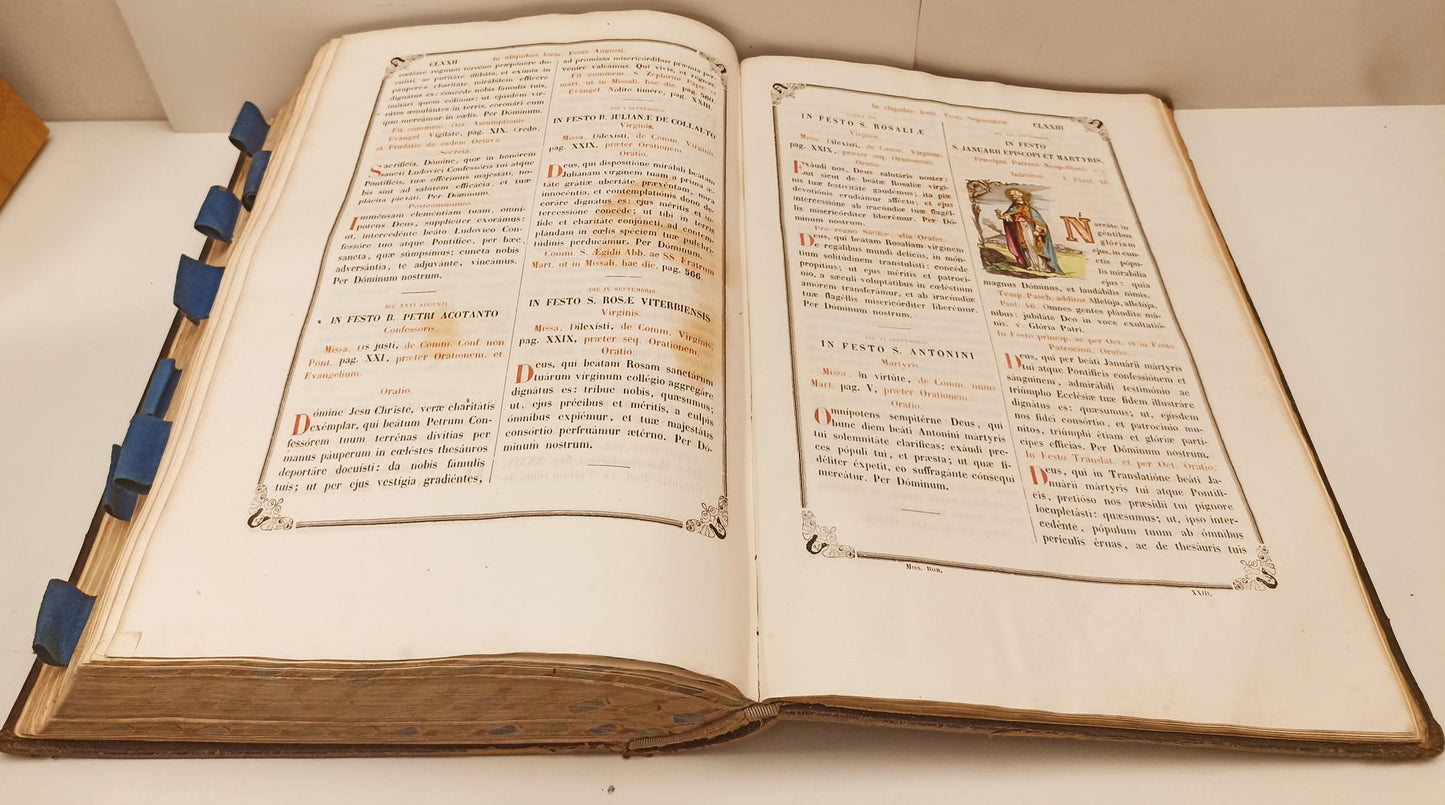 CLXXII In aliquibus locis, Festa Augusti.
cœléste regnum terréno præpónere do-
cuisti, ac puritáte illibáta, et exímia in
páuperes charitáte mirábilem effícere
dignátus es: concéde nobis fámulis tuis,
imitári quem cólimus; ut ejúsdem vir-
tútes æmulántes in terris, coronári cum
ipso mereámur in cœlis. Per Dóminum.
Fit commem. Oct. Assumptionis.
Evangel. Vigiláte, pag. XIX. Credo.
et Præfatio de eadem Octava.
Secreta
Sacrifícia, Dómine, quæ in honórem
Sancti Ludovíci Confessóris tui atque
Pontíficis, tuæ offérimus majestáti, no-
bis sint ad salútem efficácia, et tuæ
placita pietáti. Per Dóminum.
Postcommunio.
Imménsam cleméntiam tuam, omní-
potens Deus, supplíciter exorámus:
ut, intercedénte beáto Ludovíco Con-
fessóre tuo atque Pontífice, per hæc
sancta, quæ súmpsimus; cuncta nobis
adversántia, te adjuvánte, vincámus.
Per Dóminum nostrum.
DIE XXVI AUGUSTI.
IN FESTO B. PETRI ACOTANTO
Confessoris.
Missa. Os justi, de Comm. Conf. non
Pont. pag. XXI, præter Orationem, et
Evangelium.
Oratio.
Dómine Jesu Christe, veræ charitátis
exémplar, qui beátum Petrum Con-
fessórem tuum terrénas divítias per
manus páuperum in cœléstes thesáuros
deportáre docuísti: da nobis fámulis
tuis; ut per ejus vestígia gradiéntes,
ad promíssa misericórdibus præmia per-
veníre valeámus. Qui vivis, et regnas.
Fit commem. S. Zephirini Papæ, et
mart. ut in Missali, hac die, pag. 566.
Evangel. Nolite timére, pag. XXIII.
DIE I SEPTEMBRIS
IN FESTO B. JULIANÆ DE COLLALTO
Virginis.
Missa. Diléxisti, de Comm. Virginis
pag. XXIX, præter Orationem
Oratio.
Deus, qui dispositióne mirábili beátam
Juliánam vírginem tuam a prima æ-
táte grátiæ ubertáte prævéntam, mora
innocéntia, et contemplatiónis dono de-
coráre dignátus es: ejus méritis et in-
tercessióne concéde; ut tibi in terris
fide et charitáte conjúncti, ad contem-
plándam in cœlis spéciem tuæ pulchri-
túdinis perducámur. Per Dóminum.
Comm. S. Ægidii Abb. ac SS. Fratrum
Mart. ut in Missali, hac die, pag. 566.
DIE IV SEPTEMBRIS
IN FESTO S. ROSÆ VITERBIENSIS
Virginis.
Missa. Diléxisti, de Comm. Virginis,
pag. XXIX, præter seq. Orationem.
Oratio.
Deus, qui beátam Rosam sanctárum
tuárum vírginum collégio aggregáre
dignátus es: tribue nobis, quæsumus;
ut, ejus précibus et méritis, a culpis
ómnibus expiémur, et tuæ majestátis
consórtio perfruámur ætérno. Per Dó-
minum nostrum.
In aliquibus locis, Festa Septembris CLXXIII
IN FESTO S. ROSALIÆ
Virginis
Missa. Diléxisti, de Comm. Virginum,
pag. XXIX, præter seq. Orationem.
Oratio.
Exáudi nos, Deus salutáris noster:
ut sicut de beátæ Rosáliæ vírgi-
nis tuæ festivitáte gaudémus; ita piæ
devotiónis erudiámur afféctu; et ejus
intercessióne ab iracúndiæ tuæ flagél-
lis misericórditer liberémur. Per Dó-
minum nostrum.
Pro regno Siciliæ, alia Oratio.
Deus, qui beátam Rosáliam vírginem
de regálibus mundi delíciis, in món-
tium solitúdinem transtulísti: concéde
propítius; ut ejus méritis et patrocí-
nio, a sǽculi voluptátibus in cœléstium
amórem transferámur, et ab iracúndiæ
tuæ flagéllis misericórditer liberémur.
Per Dóminum nostrum.
IN FESTO S. ANTONINI
Martyris.
Missa. In virtúte, de Comm. unius
Mart. pag. V, præter Orationem.
Oratio.
Omnípotens sempitérne Deus, qui
hunc diem beáti Antoníni mártyris
tui solemnitáte claríficas: exáudi pre-
ces pópuli tui, et præsta; ut quæ fi-
déliter éxpetit, eo suffragánte cónsequi
mereátur. Per Dóminum.
IN FESTO
S. JANUARII EPISCOPI ET MARTYRIS.
Præcipui Patroni Neapolitani.
Introitus. I. Paral. 16.
Narráte in
géntibus
glóriam
ejus, in cun-
ctis pópu-
lis mirabília
ejus: quia
magnus Dóminus, et laudábilis nimis.
Temp. Pasch. additur Allelúja, allelúja.
Psal. 46. Omnes gentes pláudite má-
nibus: jubiláte Deo in voce exultatió-
nis. v. Glória Patri.
In Festo princip. ac per Oct. et in Festo
Patrocinii, Oratio.
Deus, qui per beáti Januárii mártyris
tui atque Pontíficis confessiónem et
sánguinem, admirábili testimónio ac
triúmpho Ecclésiæ tuæ fidem illustráre
dignátus es: quæsumus; ut, ejúsdem
nos fídei consórtio, et patrocínio mu-
nitos, triúmphi étiam et glóriæ partí-
cipes effícias. Per Dóminum nostrum.
In Festo Translat. et per Oct. Oratio.
Deus, qui in Translatióne beáti Ja-
nuárii mártyris tui atque Pontífi-
cis, pretióso nos præsídii tui pígnore
locupletásti: quæsumus; ut, ipso inter-
cedénte, pópulum tuum ab ómnibus
perículis éruas, ac de thesáuris tuis
MISS. ROM.
XXIII.